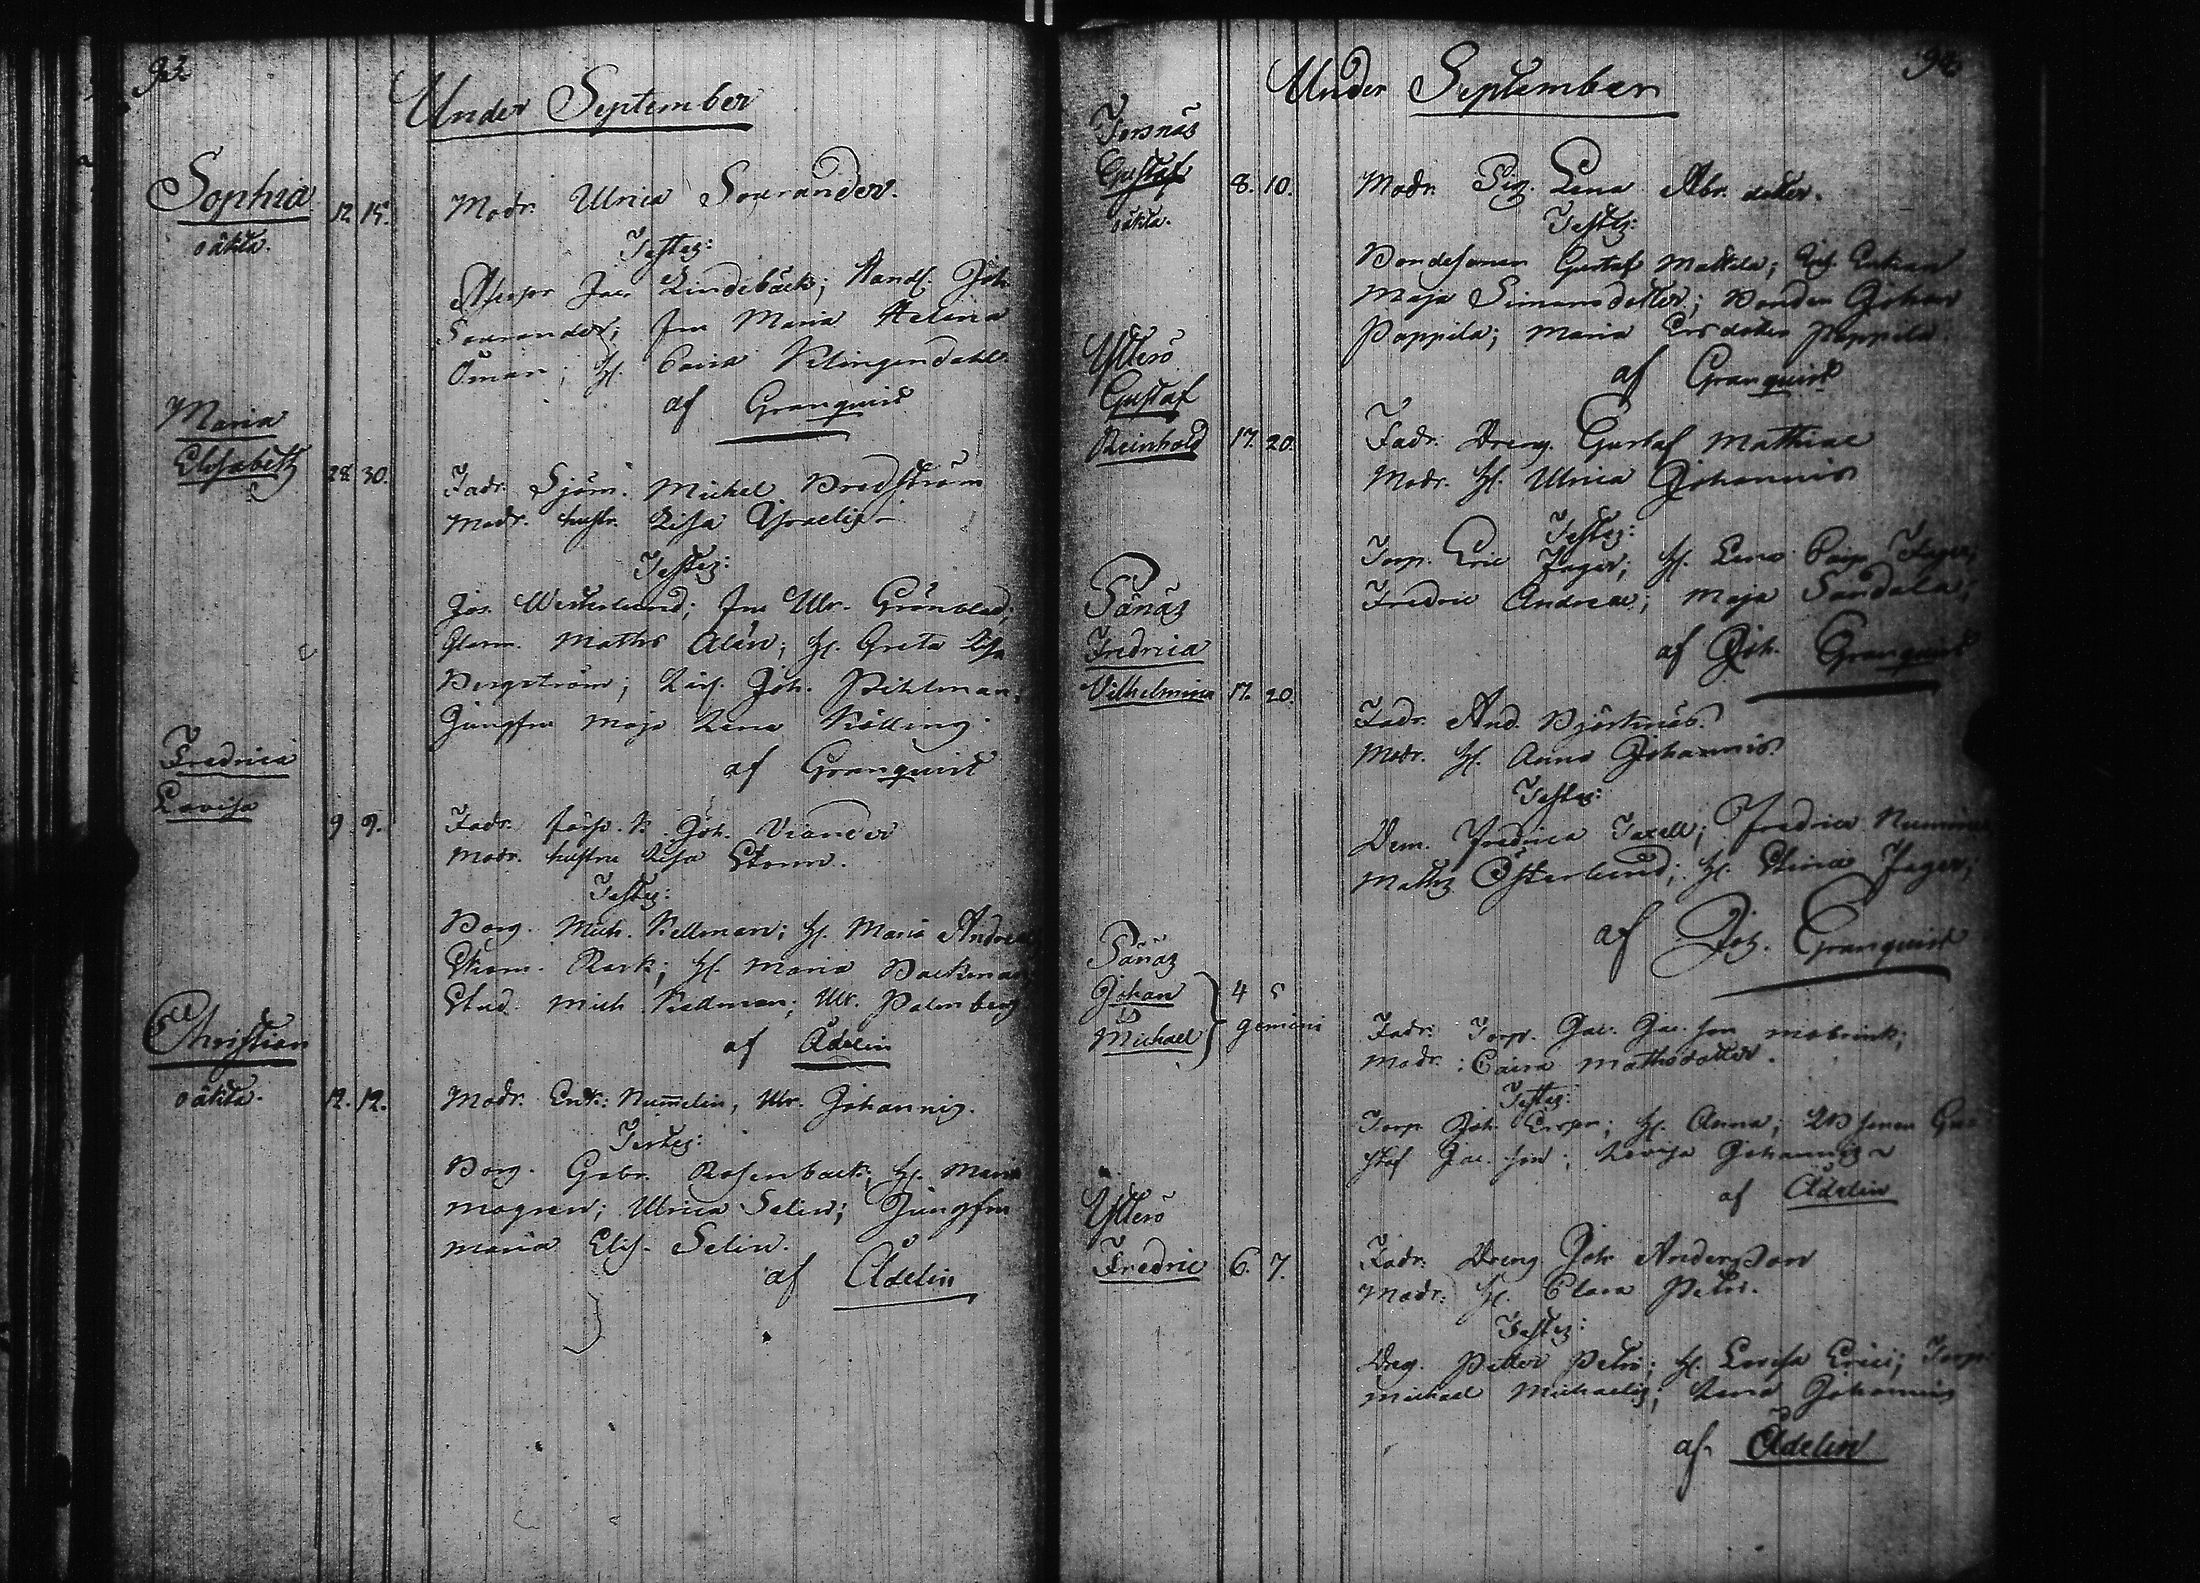 93.
Under September
Sophia
oäkta.
12. 15.
Modr. Ulrica Sourander.
Testes:
Jac. Lindebäck; Handl. Joh.
Sourander; Fru Maria Helena
Öman; H. Caisa Klingendahl
af Granquist
Maria
Elisabeth
28. 30.
Fadr. Sjöm. Michel Bredström
Modr. hustr. Lisa
Testes:
Joh. Westerlund; Fru Ulr. Grönblad;
Glasm. Maths Alén; H. Greta Lisa
Bergström; Joh. Pihlman,
Jungfru Maja Lena Kölling.
af Granquist
Fredrica
Lovisa
9 9.
Fadr. Joh. Viander
Modr. hustru Lisa Storm.
Testes:
Borg. Mich. Kellman; H. Maria Andreæ
Rask; H. Maria Backman
Stud. Mich. Kellman; Ulr. Palmberg
af Ådelin
Christian
oäkta.
12. 12.
Modr. Enk: Num̄elin, Ulr. Johannis.
Testes:
Borg. Gabr. Rosenback; H. Maria
Mogren; Ulrica Selin; Jungfru
Maria Elis. Selin.
af Ådelin
94.
Under September
Torsnäs
Gustaf
oäkta.
8. 10.
Modr. Pig. Lena Abr. dotter.
Testes:
Bondesonen Gustaf Mattila; Enkan
Maja Simonsdotter; Bonden Johan
Pappila; Maria Ersdotter Pappila.
af Granquist
Ytterö
Gustaf
Reinhold
17. 20.
Fadr. Dreng. Gustaf Mathiae
Modr. H. Ulrica Johannis
Testes:
Torp. Eric Jager; H. Lena Jager;
Fredric Andreae; Maja Sandala;
af Joh. Granquist
Pänäs
Fredrica
Vilhelmina
17. 20.
Fadr. And. Björknäs.
Modr. H. Anna Johannis
Testes:
Dem. Fredrica Taxell; Fredric
Maths Österlund; H. Stina Jager;
af Joh. Granquist
Pänäs
Johan
Michael
4 5
gemini
Fadr. Torp. Jac. Jac. son
Modr: Caisa Mathsdotter.
Testes:
Torp. Joh. Ersson; H. Anna; Gu-
staf Jac. son; Lovisa Johannis
af Ådelin
Ytterö
Fredric
6. 7.
Fadr. Dreng Joh Andersson
Modr: H. Clara Petri.
Testes:
Dreg. Petter Petri; H. Lovisa Erici; Torp.
Michael Michaelis; Lena Johannis
af Ådelin